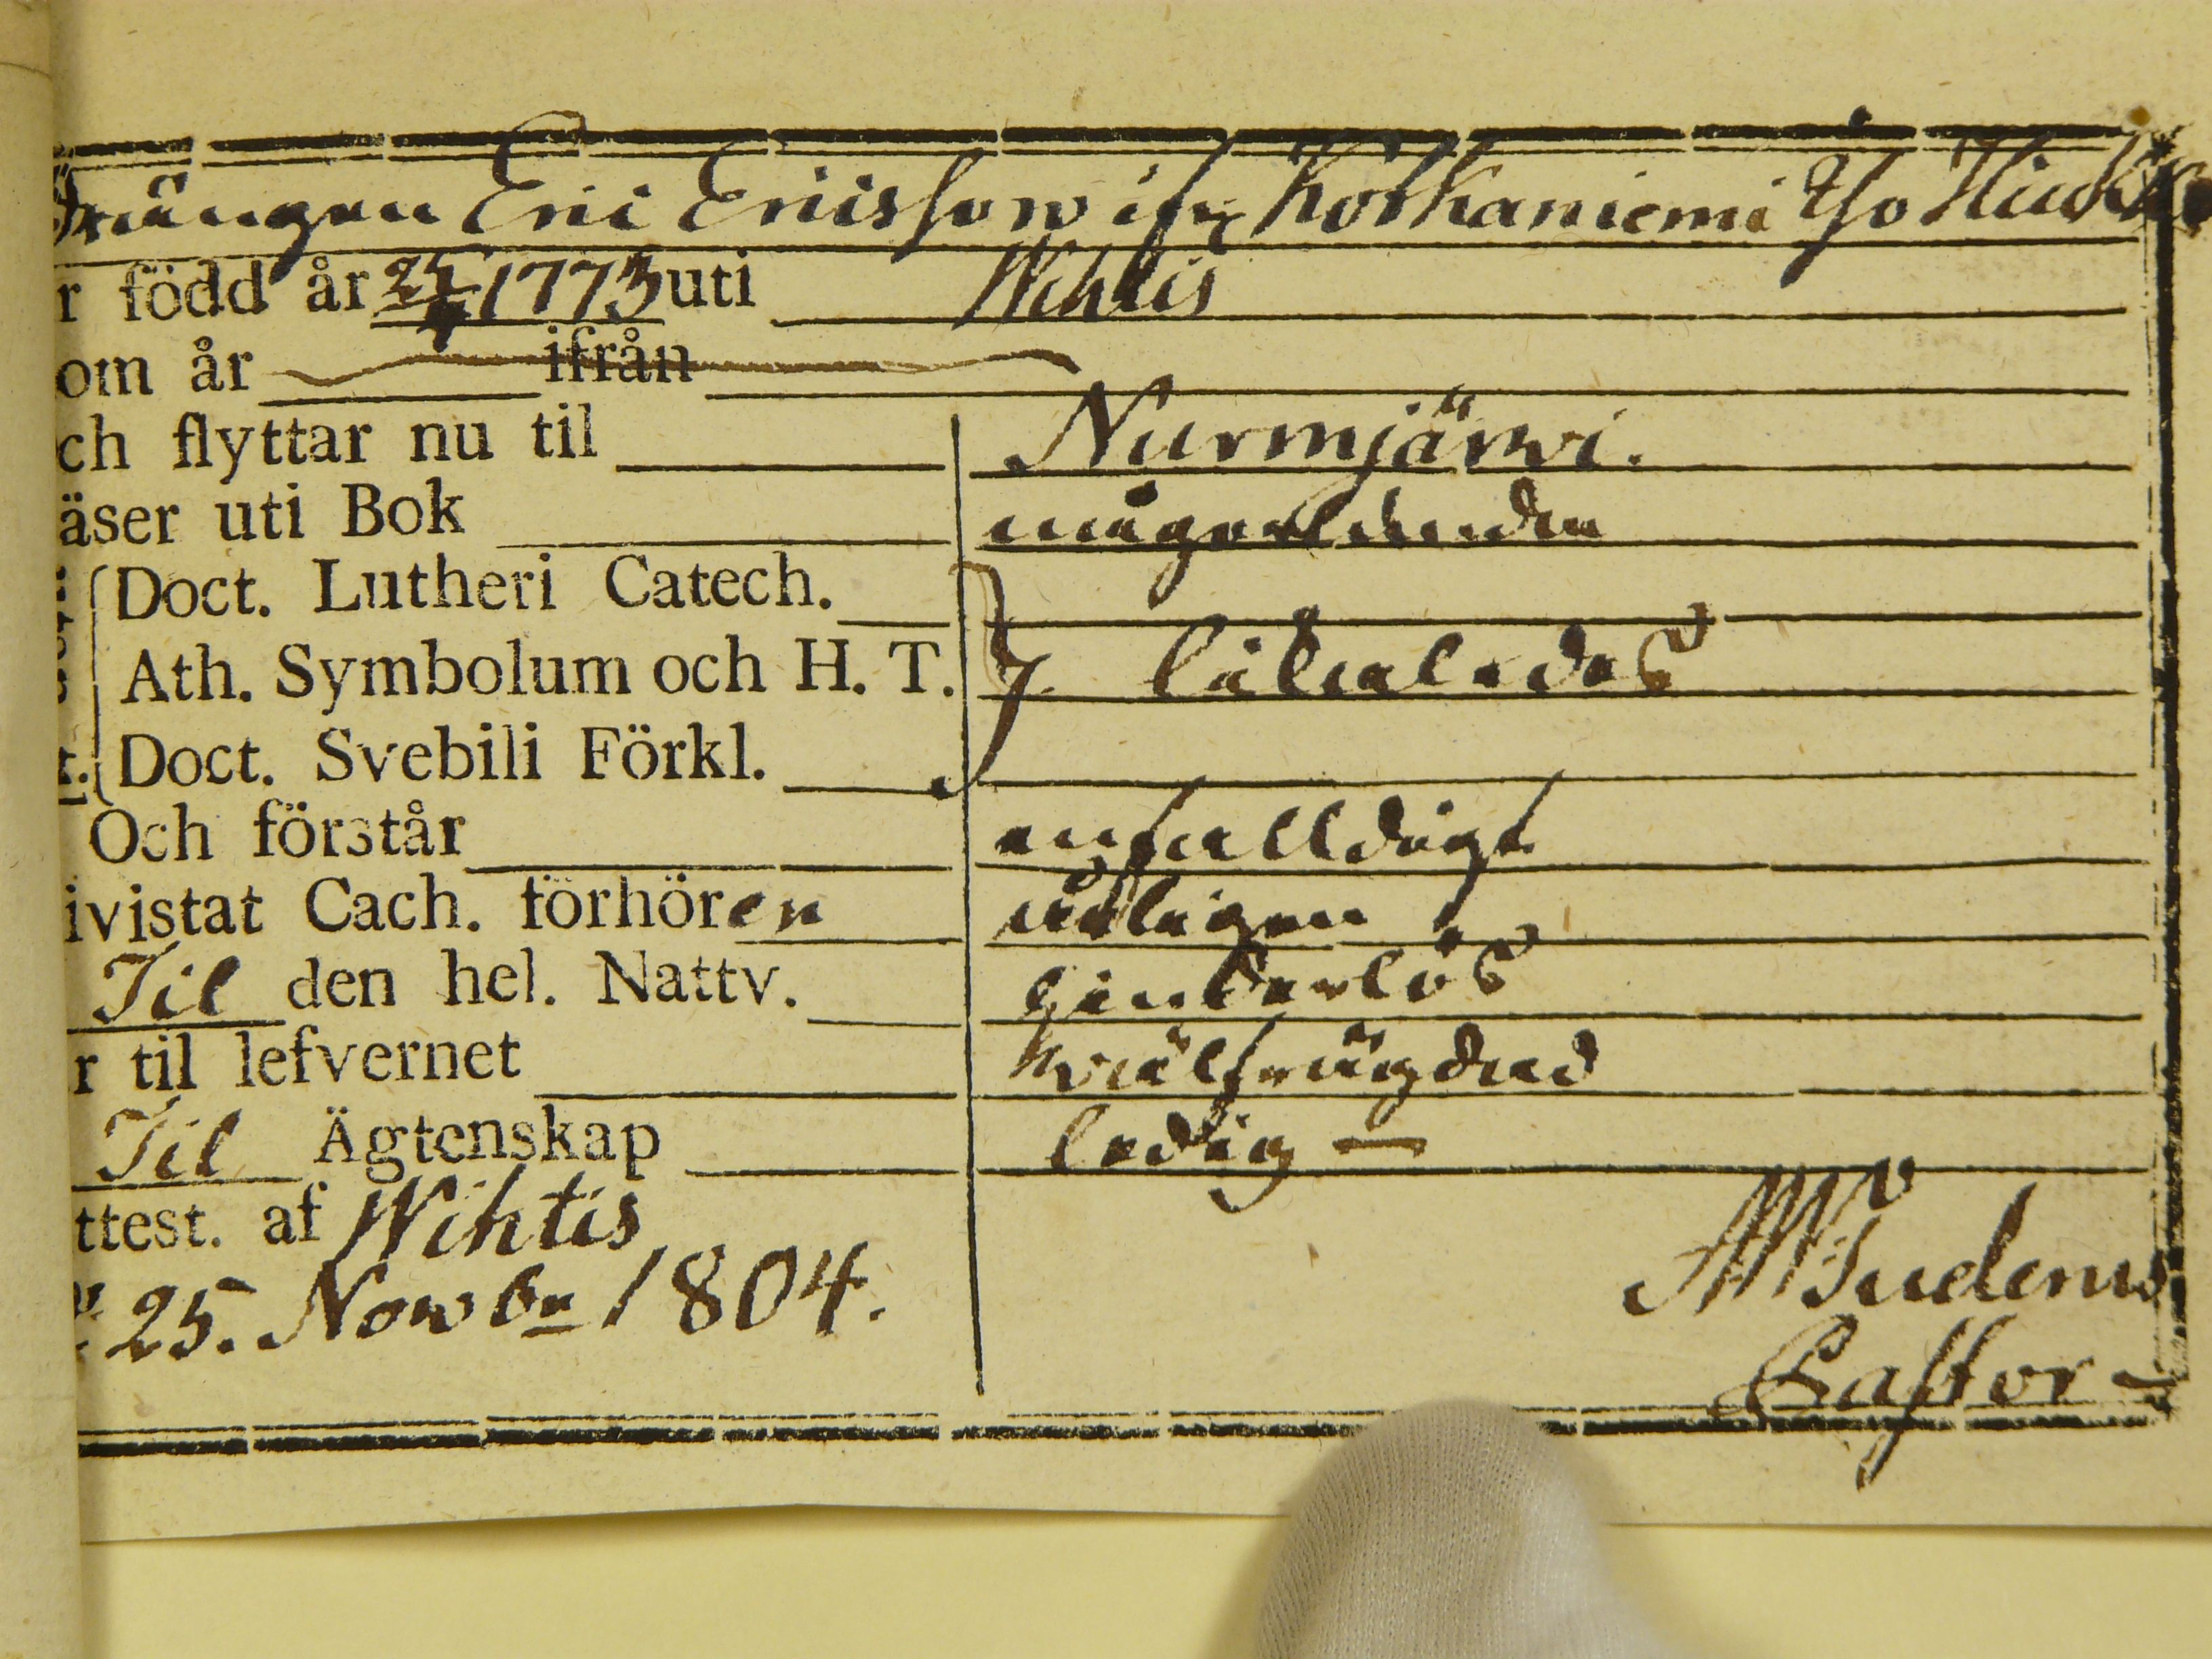 Drängen Eric Ericsson ifr. Korhaniemi
r född år 1773 uti Wihtis
om år ifrån
ch flyttar nu til Nurmjärwi.
äser uti Bok någorlunda
Doct. Lutheri Catech.
Ath. Symbolum och H. T. likaledes
Doct. Svebili Förkl.
Och förstår enfalldigt
ivistat Cach. förhören
Til den hel. Nattv. hinderlös
r til lefvernet wälfrägdad
Til Ägtenskap ledig —
ttest. af Wihtis
25. Nowbr 1804.
Pastor